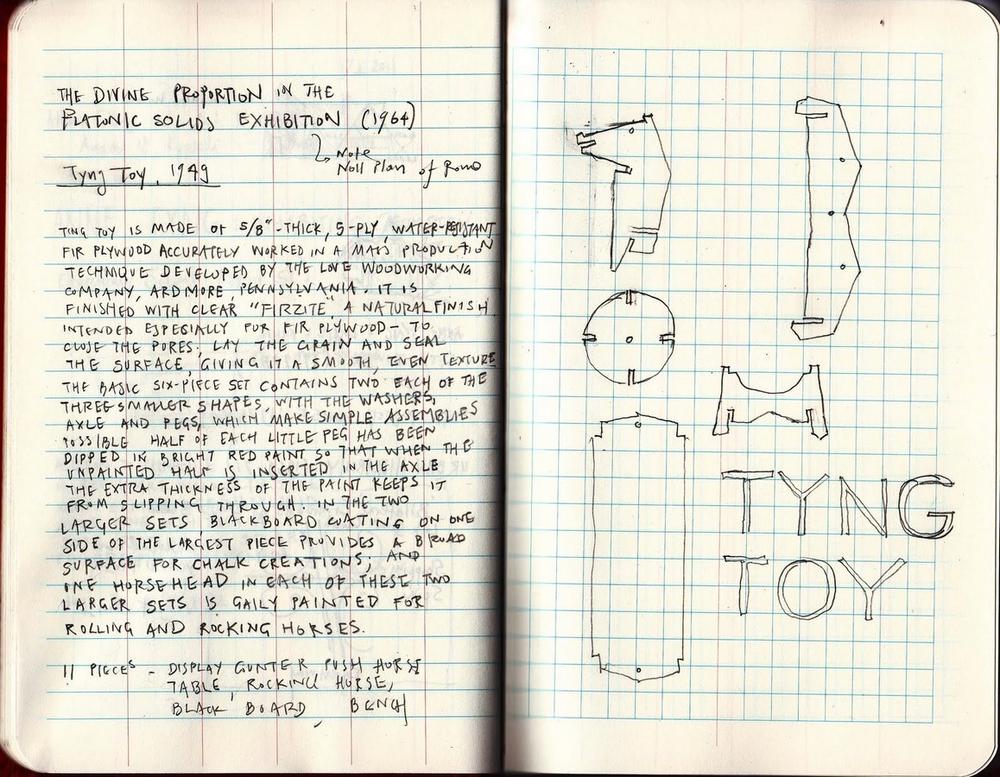 THE DIVINE PROPORTION IN THE
PLATONIC SOLIDS EXHIBITION (1964)
Note
Noll Plan of Rome
Tyng Toy, 1949
TING TOY IS MADE OF 5/8"-THICK, 5-PLY, WATER-RESISTANT
FIR PLYWOOD ACCURATELY WORKED IN A MASS PRODUCTION
TECHNIQUE DEVELOPED BY THE LOVE WOODWORKING
COMPANY, ARDMORE, PENNSYLVANIA. IT IS
FINISHED WITH CLEAR "FIRZITE", A NATURAL FINISH
INTENDED ESPECIALLY FOR FIR PLYWOOD - TO
CLOSE THE PORES. LAY THE GRAIN AND SEAL
THE SURFACE, GIVING IT A SMOOTH, EVEN TEXTURE
THE BASIC SIX-PIECE SET CONTAINS TWO EACH OF THE
THREE SMALLER SHAPES, WITH THE WASHERS,
AXLE AND PEGS, WHICH MAKE SIMPLE ASSEMBLIES
POSSIBLE HALF OF EACH LITTLE PEG HAS BEEN
DIPPED IN BRIGHT RED PAINT SO THAT WHEN THE
UNPAINTED HALF IS INSERTED IN THE AXLE
THE EXTRA THICKNESS OF THE PAINT KEEPS IT
FROM SLIPPING THROUGH. IN THE TWO
LARGER SETS BLACKBOARD COATING ON ONE
SIDE OF THE LARGEST PIECE PROVIDES A BROAD
SURFACE FOR CHALK CREATIONS, AND
ONE HORSEHEAD IN EACH OF THESE TWO
LARGER SETS IS GAILY PAINTED FOR
ROLLING AND ROCKING HORSES.
11 PIECES - DISPLAY GUNTER PUSH HORSE
TABLE, ROCKING HORSE,
BLACK BOARD BENCH
TYNG
TOY